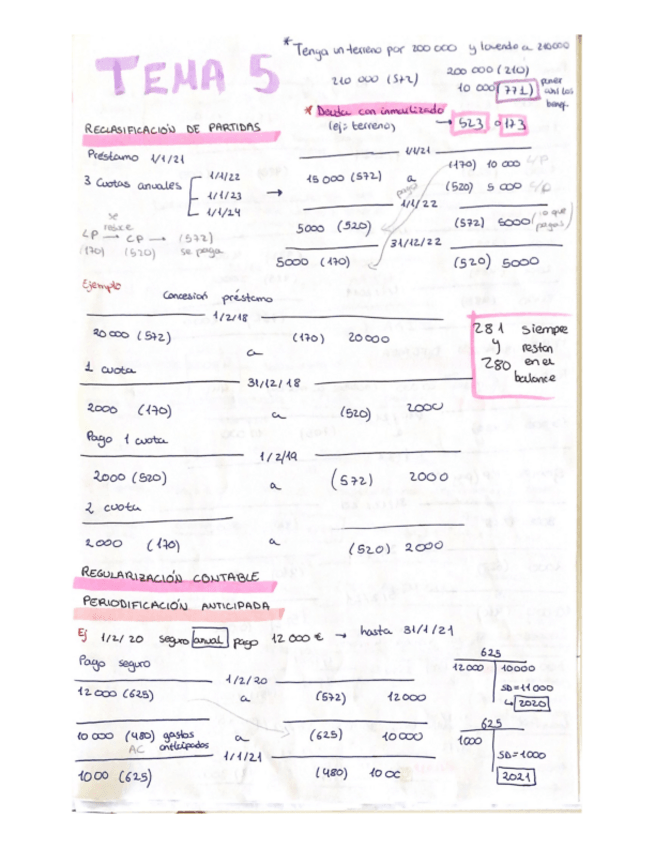 TEMA 5
* Tenga un terreno por 200 000 y lo vendo a 210000
210 000 (572)
200 000 (210)
10 000 (771)
poner
así los
* Deuda con inmovilizado
(ej: terreno) → 523 o 173
RECLASIFICACIÓN DE PARTIDAS
Préstamo 1/1/21
3 cuotas anuales
1/1/22
1/1/23
1/1/24
→
se reduce
LP → CP → (572)
(170) (520) se paga
1/1/21
15 000 (572) a (170) 10 000 L/P
(520) 5 000 C/P
pago 1/1/22
5000 (520) (572) 5000 (lo que pagas)
31/12/22
5000 (170) (520) 5000
Ejemplo
Concesion préstamo
1/2/18
20 000 (572) a (170) 20 000
281 siempre
y restan
280 en el
balance
1 cuota
31/12/18
2000 (170) a (520) 2000
Pago 1 cuota
1/2/19
2000 (520) a (572) 2000
2 cuota
2000 (170) a (520) 2000
REGULARIZACIÓN CONTABLE
PERIODIFICACIÓN ANTICIPADA
Ej 1/2/20 seguro anual pago 12 000 € → hasta 31/1/21
Pago seguro
1/2/20
12 000 (625) a (572) 12000
10 000 (480) gastos anticipados a (625) 10 000
AC
1/1/21
1000 (625) (480) 1000
625
12 000 10000
SD = 11 000
↳ 2020
625
1000
SD = 1000
2021